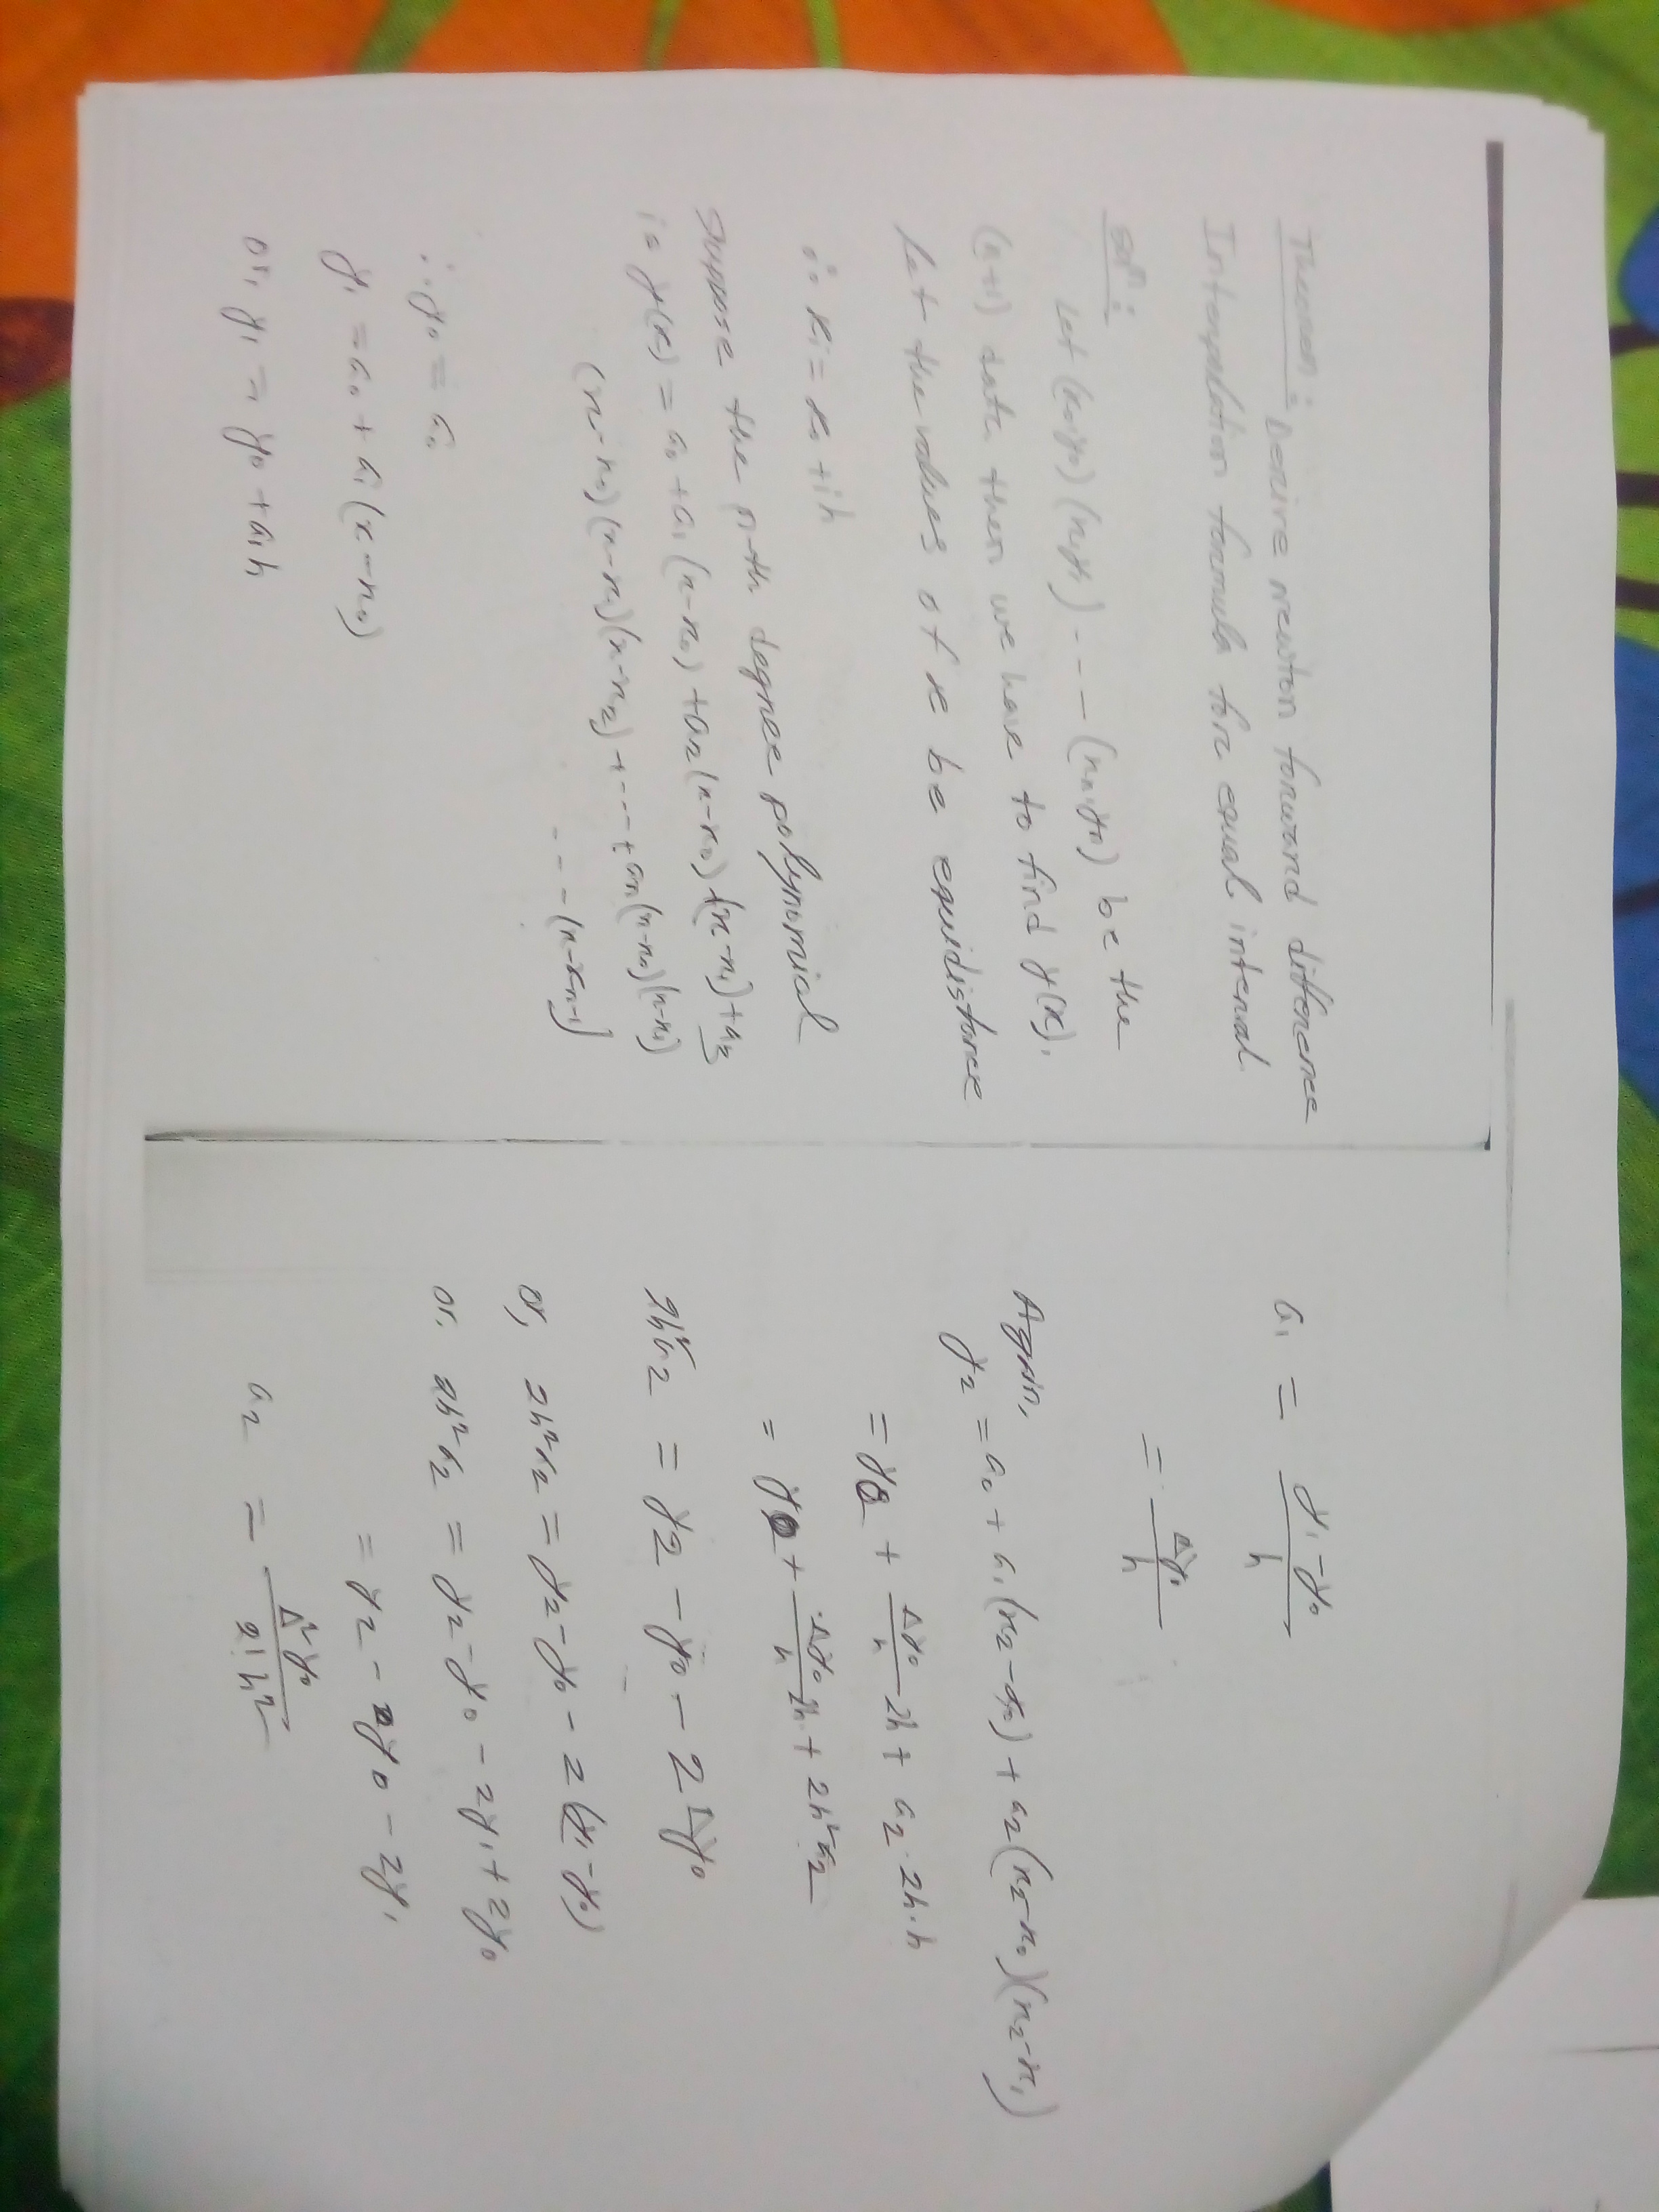 Theorem: Derive newton forward difference
Interpolation formula for equal interval
Solⁿ:
Let (x₀,y₀) (x₁,y₁) ---- (xₙ,yₙ) be the
(n+1) data then we have to find y(x).
Let the values of x be equidistance
∴ xᵢ = x₀ + ih
Suppose the n-th degree polynomial
is y(x) = a₀ + a₁ (x-x₀) + a₂ (x-x₀) (x-x₁) + a₃
(x-x₀) (x-x₁) (x-x₂) + ---- + aₙ (x-x₀) (x-x₁)
---- (x-xₙ₋₁)
∴ y₀ = a₀
y₁ = a₀ + a₁ (x-x₀)
or, y₁ = y₀ + a₁h
a₁ = (y₁-y₀)/h
= Δy₀/h
Again,
y₂ = a₀ + a₁ (x₂-x₀) + a₂ (x₂-x₀) (x₂-x₁)
= y₀ + Δy₀/h 2h + a₂ · 2h · h
= y₀ + Δy₀/h 2h + 2h²a₂
2h²a₂ = y₂ - y₀ - 2Δy₀
or, 2h²a₂ = y₂ - y₀ - 2 (y₁-y₀)
or. 2h²a₂ = y₂ - y₀ - 2y₁ + 2y₀
= y₂ - y₀ - 2y₁
a₂ = Δ²y₀/2!h²